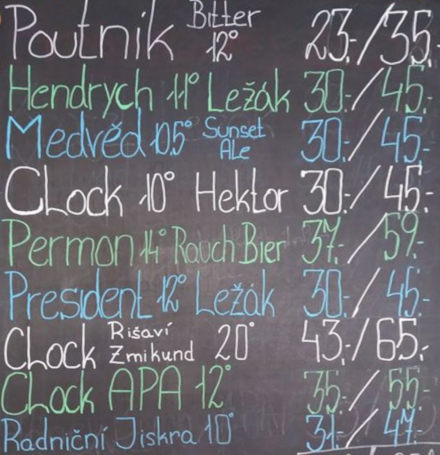 Poutník Bitter 12° 23.-/35.
Hendrych 11° Ležák 30.-/45.-
Medvěd 10,5° Sunset Ale 30.-/45.-
CLock 10° Hektor 30.-/45.-
Permon 14° Rauch Bier 37.-/59.-
President 12° Ležák 30.-/45.-
CLock Rišaví Zmikund 20° 43.-/65.-
CLock APA 12° 35.-/55.-
Radniční Jiskra 10° 31.-/47.-